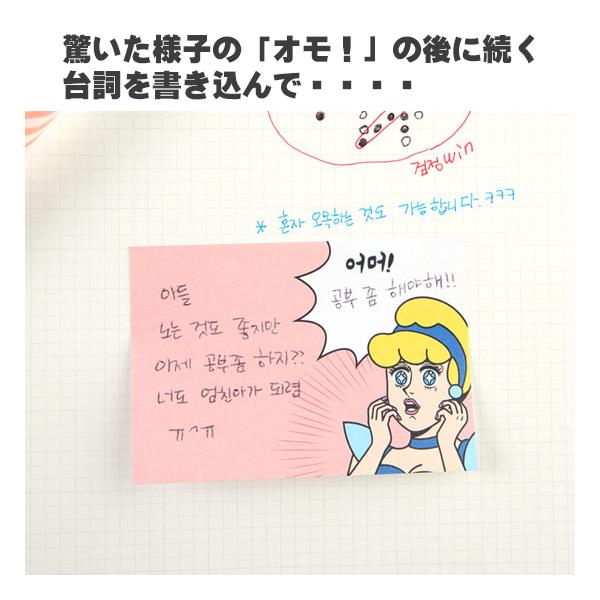 驚いた様子の「オモ！」の後に続く
台詞を書き込んで・・・・
검정win
* 혼자 오목하는 것도 가능합니다.ㅋㅋㅋ
어머!
공부 좀 해야해!!
아들
노는 것도 좋지만
이제 공부좀 하지??
너도 엄친아가 되렴
ㅠ^ㅠ